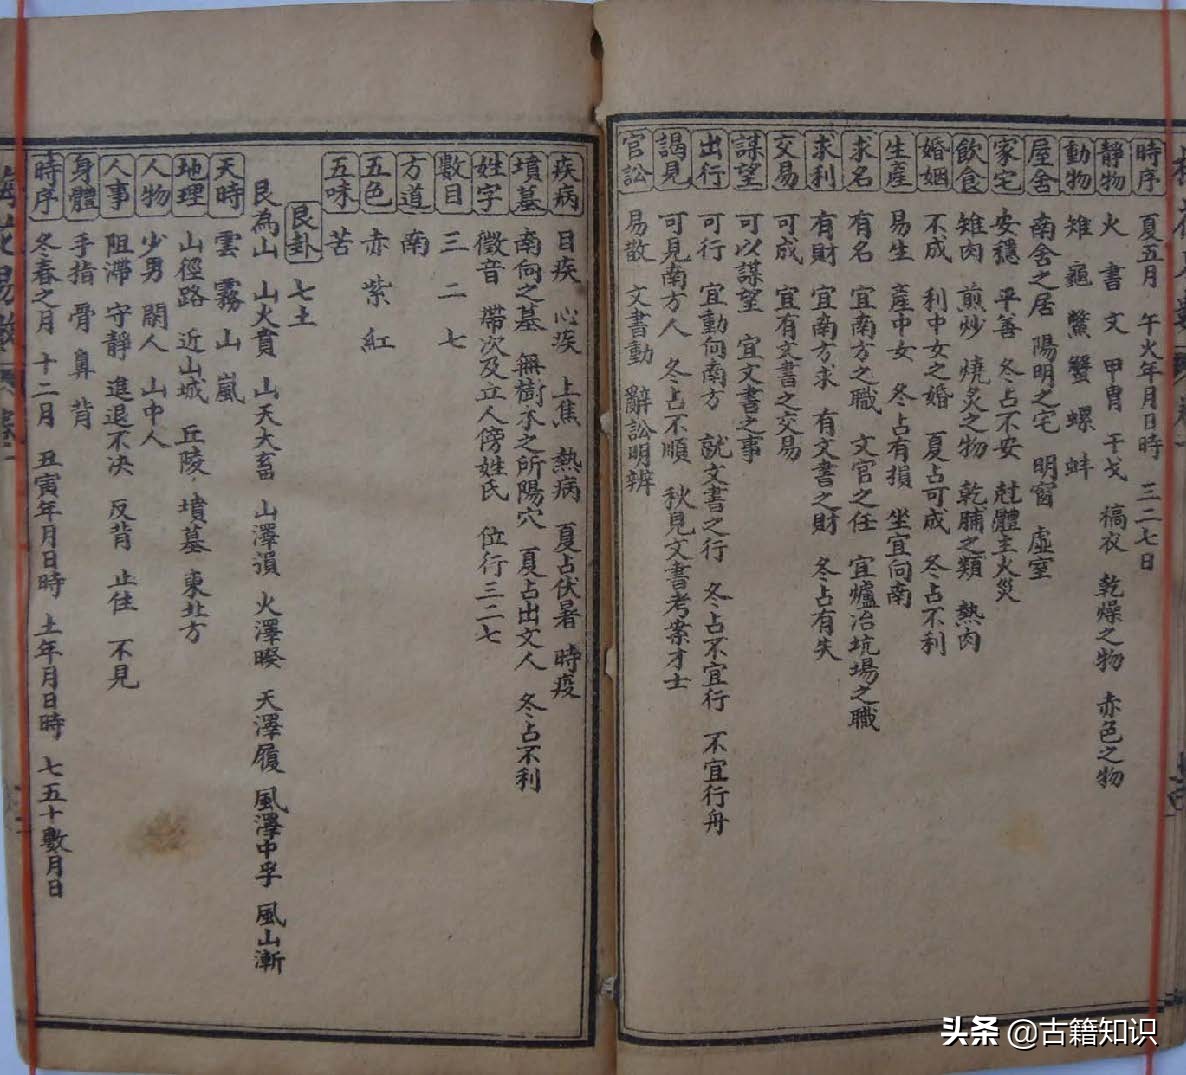 時序 夏五月 午火年月日時 三二七日
靜物 火 書 文 甲冑 干戈 槁衣 乾燥之物 赤色之物
動物 雉 龜 鱉 蟹 螺 蚌
屋舍 南舍之居 陽明之宅 明窗 虛室
家宅 安穩 平善 冬占不安 尅體主火災
飲食 雉肉 煎炒 燒炙之物 乾脯之類 熱肉
婚姻 不成 利中女之婚 夏占可成 冬占不利
生產 易生 產中女 冬占有損 坐宜向南
求名 有名 宜南方之職 文官之任 宜爐冶坑場之職
求利 有財 宜南方求 有文書之財 冬占有失
交易 可成 宜有文書之交易
謀望 可以謀望 宜文書之事
出行 可行 宜動向南方 就文書之行 冬占不宜行 不宜行舟
謁見 可見南方人 冬占不順 秋見文書考案才士
官訟 易散 文書動 辭訟明辨
疾病 目疾 心疾 上焦 熱病 夏占伏暑 時疫
墳墓 南向之墓 無樹木之所陽穴 夏占出文人 冬占不利
姓字 徵音 帶次及立人傍姓氏 位行三二七
數目 三 二 七
方道 南
五色 赤 紫 紅
五味 苦
艮卦 七土
艮為山 山火賁 山天大畜 山澤損 火澤睽 天澤履 風澤中孚 風山漸
天時 雲 霧 山 嵐
地理 山徑路 近山城 丘陵 墳墓 東北方
人物 少男 閒人 山中人
人事 阻滯 守靜 進退不決 反背 止住 不見
身體 手指 骨 鼻 背
時序 冬春之月 十二月 丑寅年月日時 土年月日時 七五十數月日
头条 @古籍知识